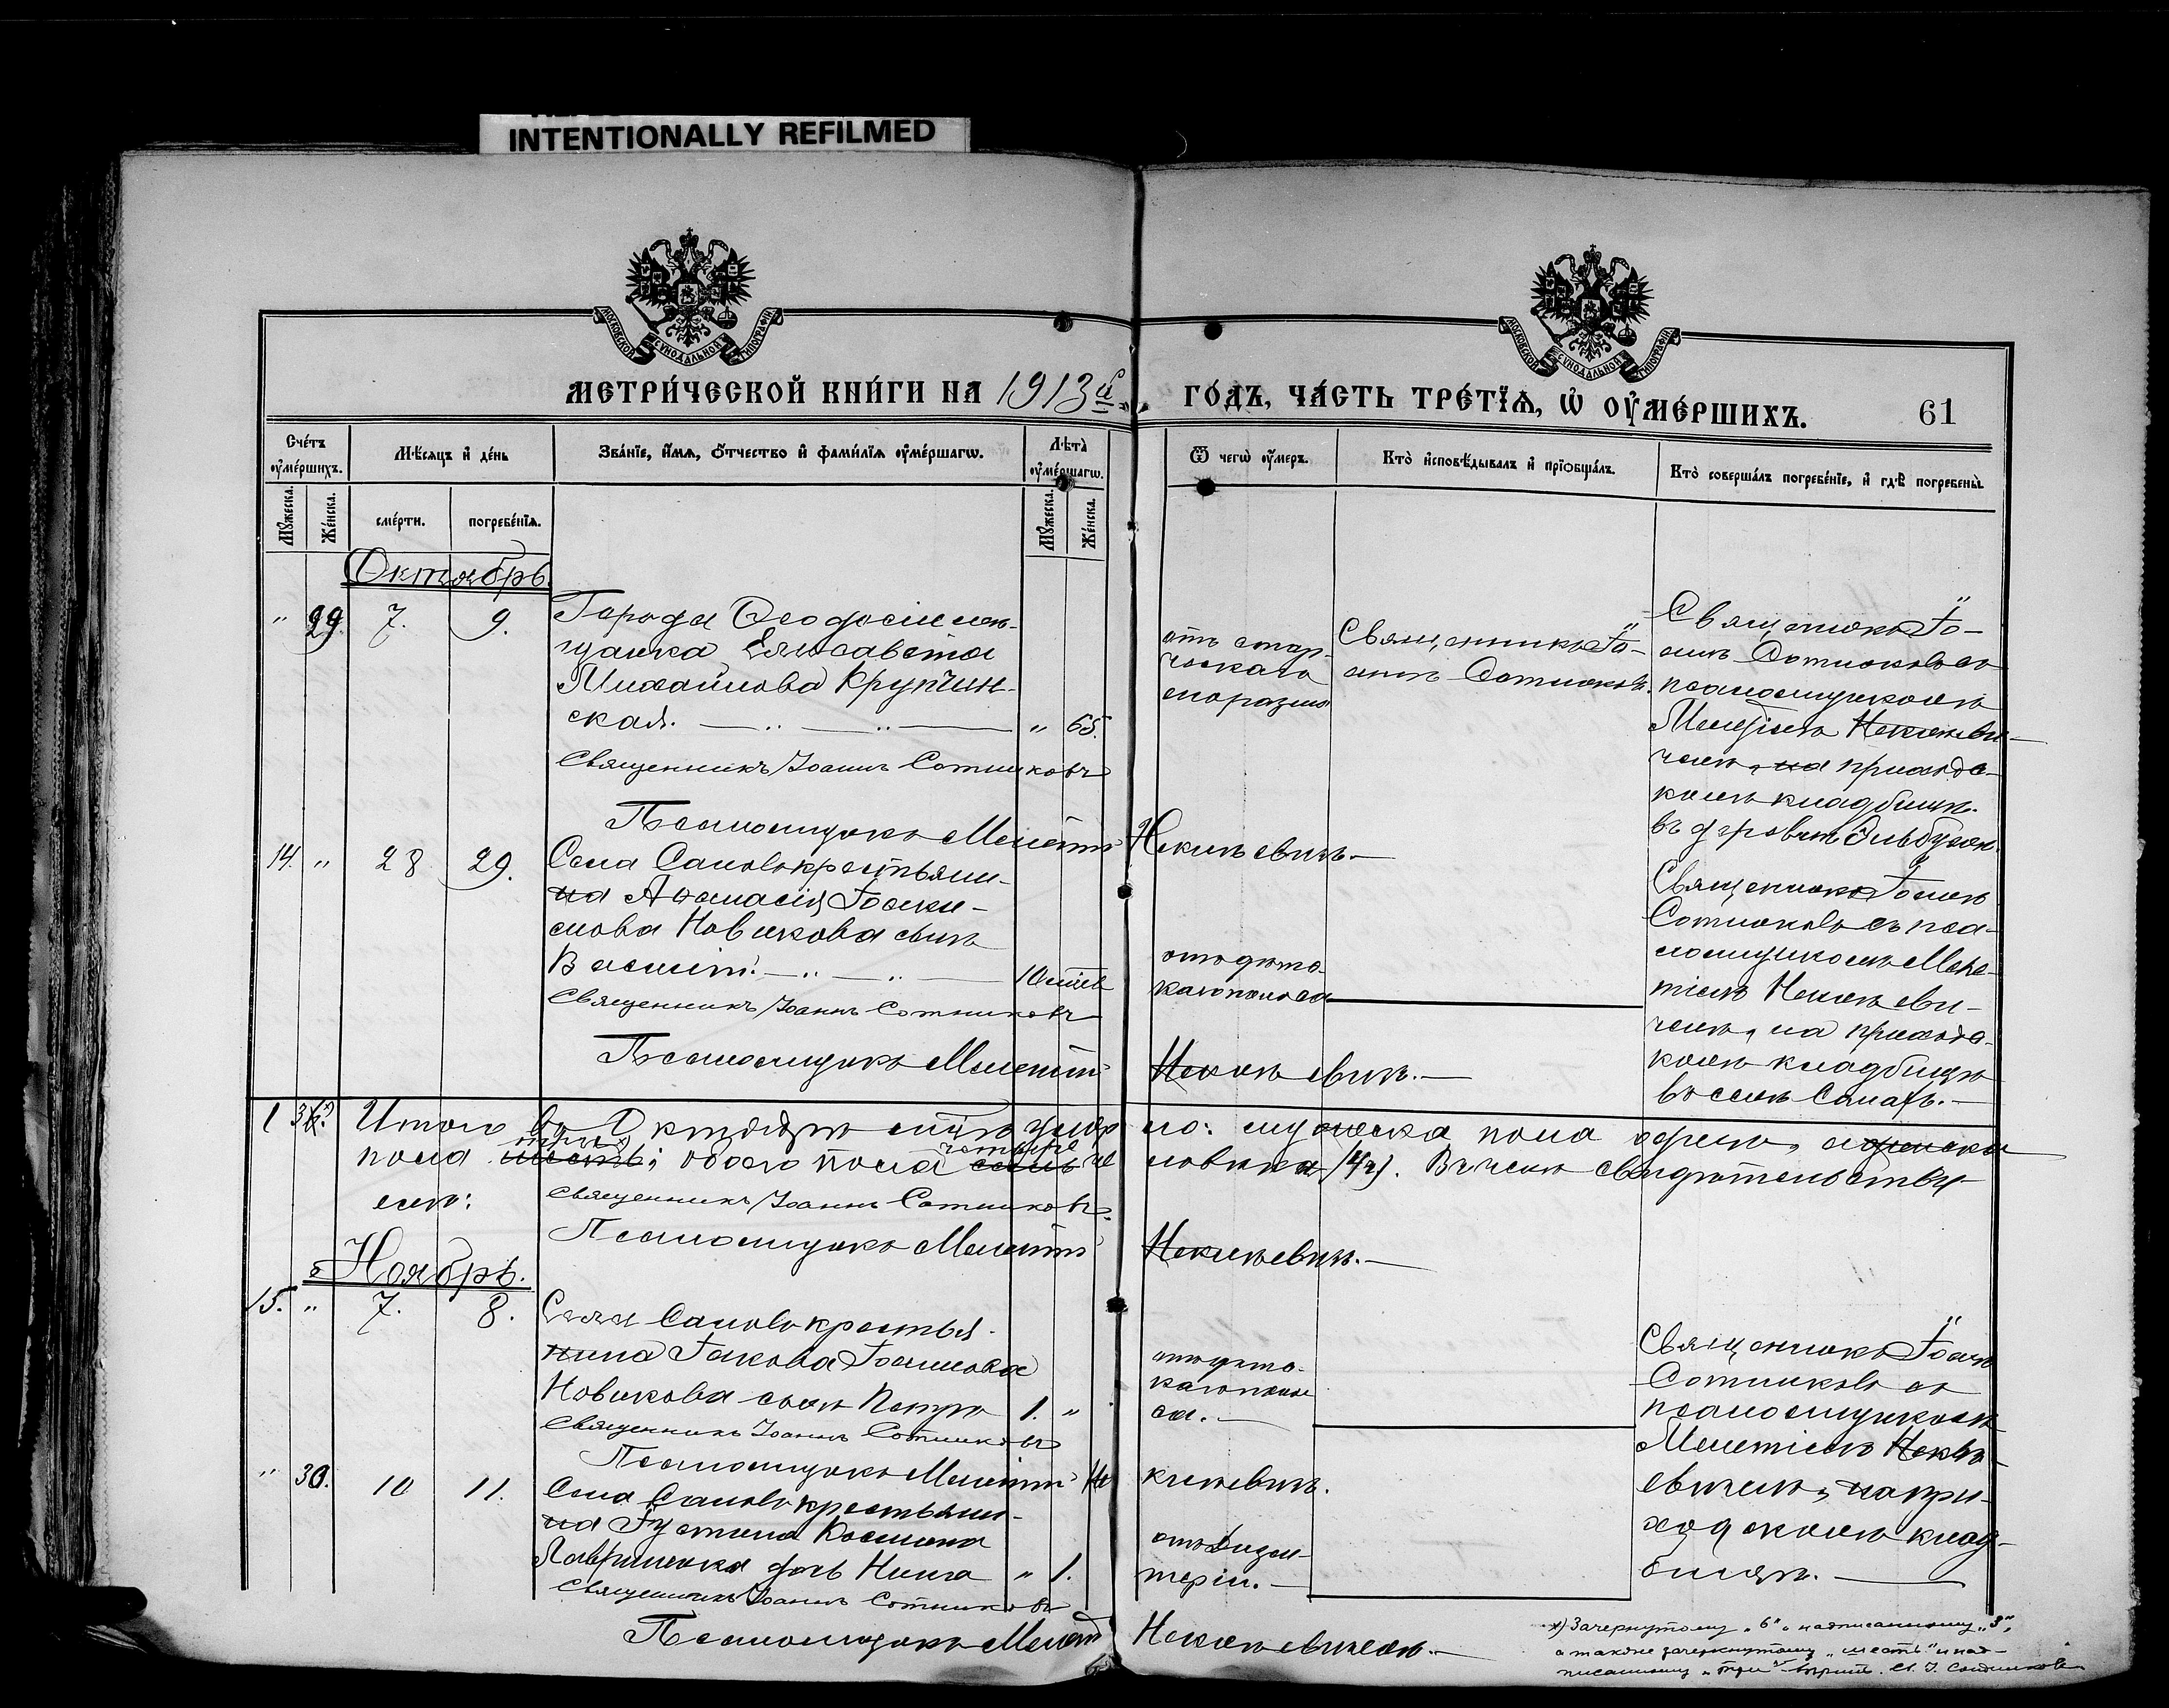 INTENTIONALLY REFILMED
МОСКОВСКОЙ СѴНОДАЛЬНОЙ ТИПОГРАФІИ
МОСКОВСКОЙ СѴНОДАЛЬНОЙ ТИПОГРАФІИ
МЕТРИ́ЧЕСКОЙ КНИ́ГИ НА 1913й
ГО́ДЪ, ЧА́СТЬ ТРЕ́ТЇѦ, Ѡ҆ ОУ҆МЕ́РШИХЪ.
61
Сче́тъ оу҆ме́ршихъ.
Мѣ́сяцъ и҆ де́нь
Зва́нїе, и҆́мѧ, ѻ҆́тчество и҆ фами́лїѧ оу҆ме́ршагѡ.
Лѣ́та оу҆ме́ршагѡ.
Ѿ чегѡ̀ оу҆́меръ.
Кто̀ и҆сповѣ́дывалъ и҆ прїобща́лъ.
Кто̀ соверша́лъ погребе́нїе, и҆ гдѣ̀ погребены̀.
Мꙋ́жеска.
Же́нска.
сме́рти.
погребе́нїѧ.
Мꙋ́жеска.
Же́нска.
Октябрь.
" 29. 7. 9. Города Ѳеодосіи мѣ-
щанка Елисавета
Михайлова Крупчин-
ская. " 65.
Священникъ Іоаннъ Сотниковъ
Псаломщикъ Мелетій Некиневичъ.
отъ стар-
ческаго
Священникъ Іо-
аннъ Сотниковъ.
Священникъ Іо-
аннъ Сотниковъ съ
псаломщикомъ
Мелетіемъ Некиневи-
чемъ, на приходс-
комъ кладбищѣ.
въ деревнѣ
14. " 28 29. Села Саловъ крестьяни-
на Аѳанасія Іоаки-
мова Новикова сынъ
Василій.
Священникъ Іоаннъ Сотниковъ
Псаломщикъ Мелетій Некиневичъ.
Священникъ Іоаннъ
Сотниковъ съ пса-
ломщикомъ Меле-
тіемъ Некиневи-
чемъ, на приходс-
комъ кладбищѣ
въ селѣ Салахъ.
1 3 Итого въ Октябрѣ м-цѣ умер ло: мужеска пола одинъ, женска
пола три шесть; обоего пола четыре семь че ловѣка (4).. Въ чемъ свидѣтельству
емъ: Священникъ Іоаннъ Сотниковъ.
Псаломщикъ Мелетій Некиневичъ.
Ноябрь.
15. " 7. 8. Села Саловъ крестья-
нина Іакова Іоаннова
Новикова сынъ Петръ 1. "
Священникъ Іоаннъ Сотниковъ
Псаломщикъ Мелетій Не киневичъ.
Священникъ Іоаннъ
Сотниковъ съ
псаломщикомъ
Мелетіемъ Некин-
евичемъ, на при-
ходскомъ клад-
бищѣ.
" 30. 10 11. Села Саловъ крестьяни-
на Іустина Космина
дочь Нина " 1.
отъ дизен-
теріи.
Священникъ Іоаннъ Сотниковъ
Псаломщикъ Мелетій Некиневичъ.
*) Зачеркнутому „6" и надписанному „3",
а также зачеркнутому „шесть" и над-
писанному „три" вѣрить. Св. І. Сотниковъ